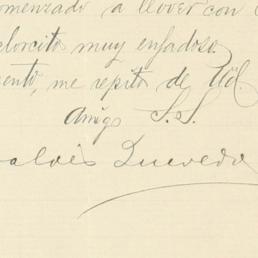 omenzado a llover con
elorcito muy enfadoso
ento, me repito de Ud.
Amigo S.S.
alvis Quevedo